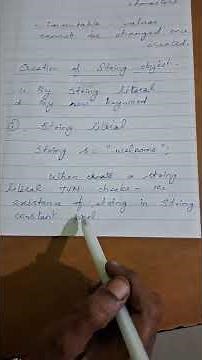 characters
- immutable values
cannot be changed once
created.
Creation of String object:-
1) By String literal
2) By new keyword
① String literal
String s = "welcome";
When create a string
literal JVM checks the
existence of string in String
constant pool